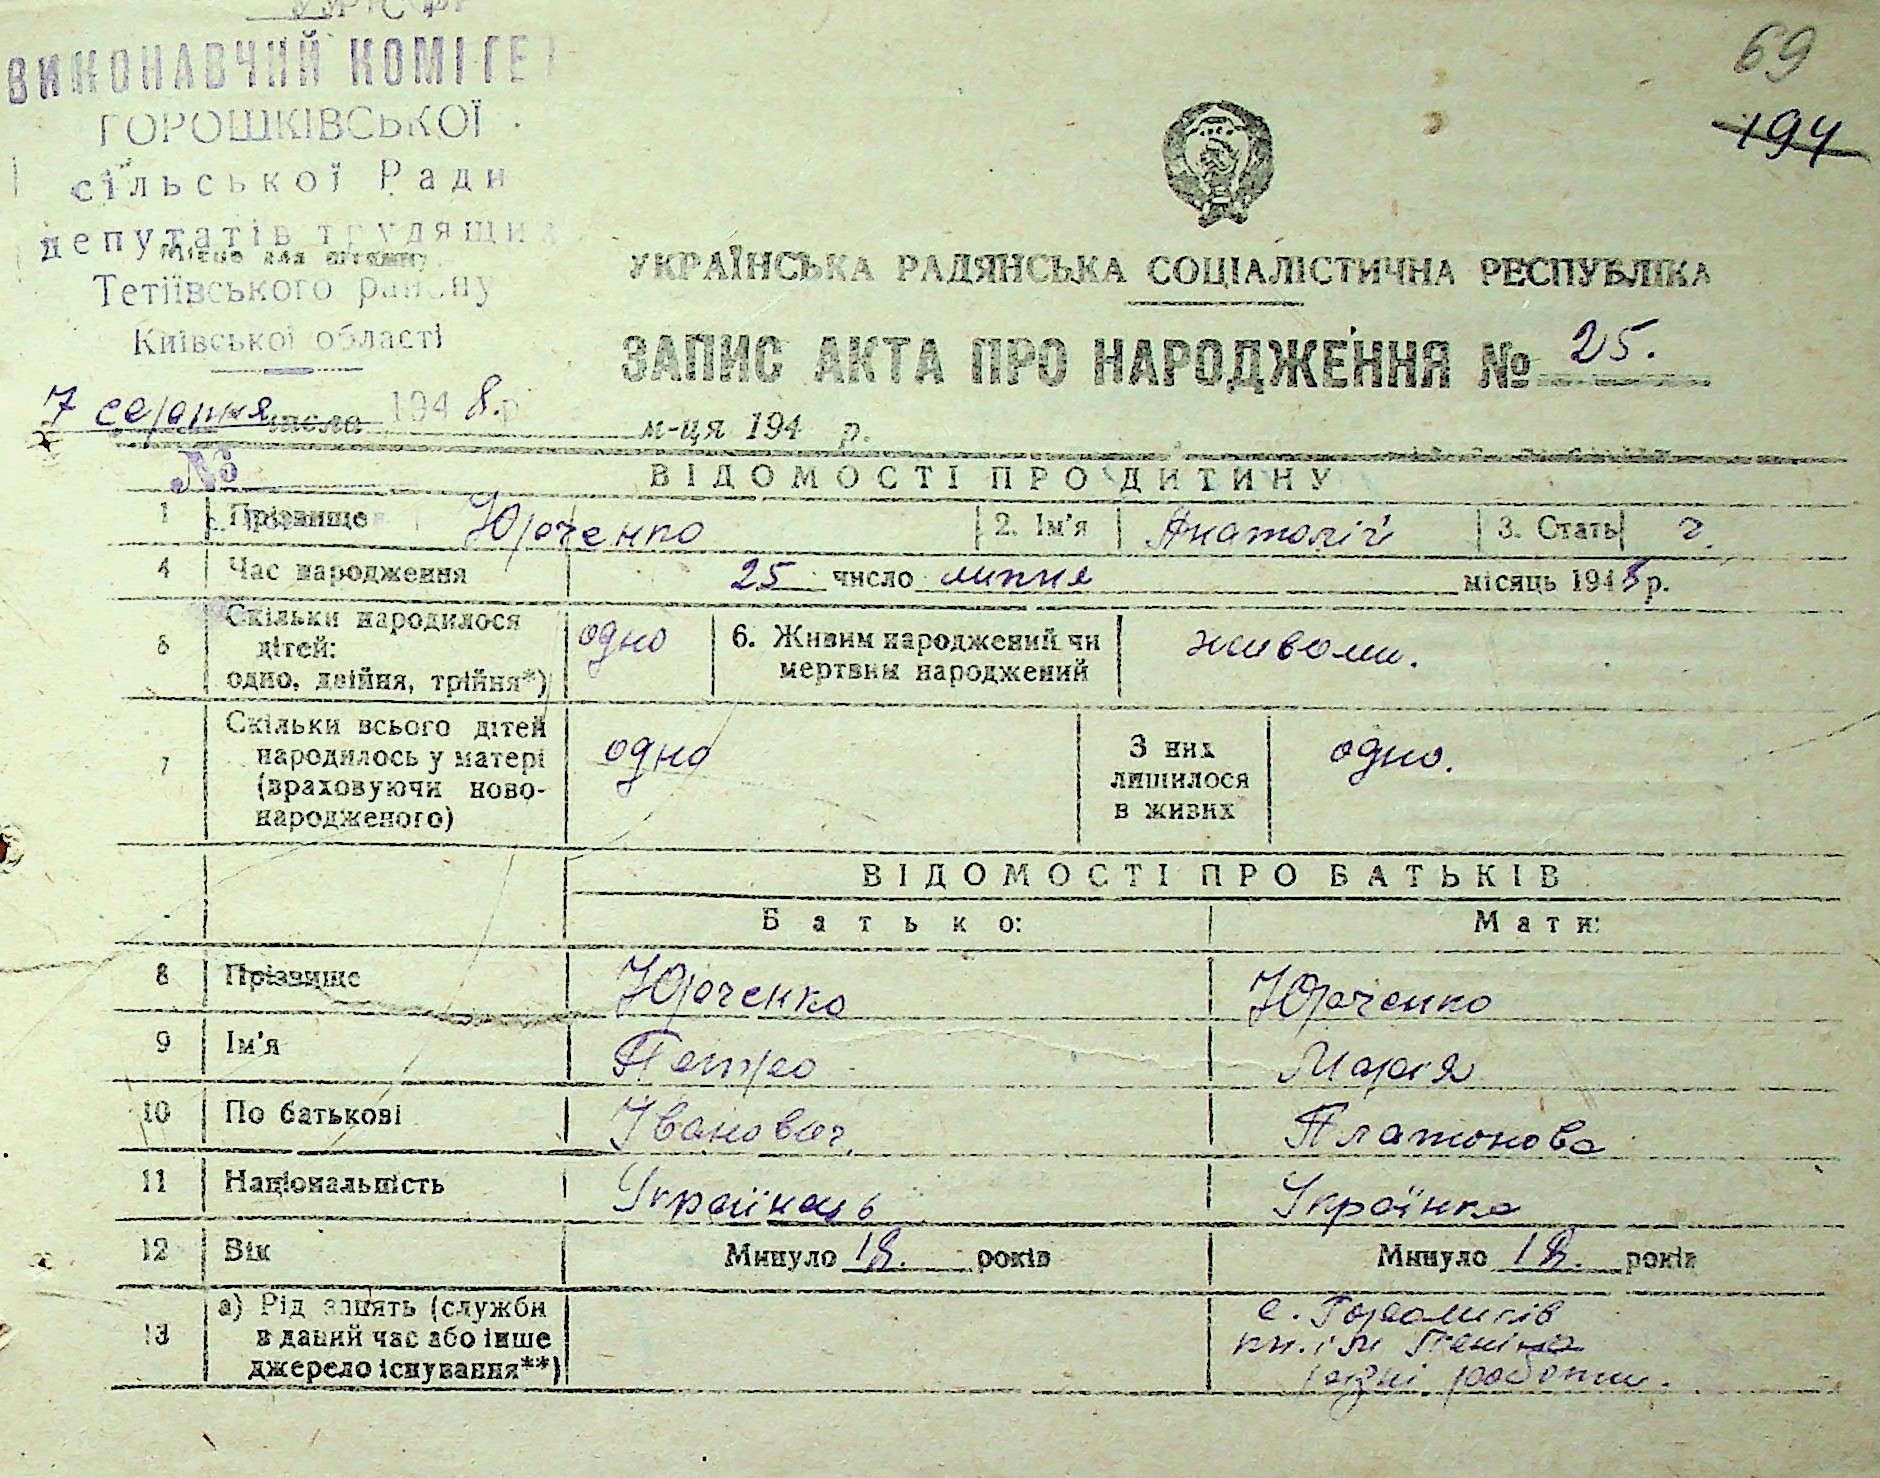 УКР. С Ф Р
ВИКОНАВЧИЙ КОМІТЕТ
ГОРОШКІВСЬКОЇ
сільської Ради
депутатів трудящих
Місце для штампу
Тетіївського району
Київської області
7 серпня числа 1948 р.
№
69
194
УКРАЇНСЬКА РАДЯНСЬКА СОЦІАЛІСТИЧНА РЕСПУБЛІКА
ЗАПИС АКТА ПРО НАРОДЖЕННЯ № 25.
м-ця 194 р.
ВІДОМОСТІ ПРО ДИТИНУ
1 Прізвище Юрченко 2. Ім'я Анатолій 3. Стать ч.
4 Час народження 25 число липня місяць 1948 р.
5 Скільки народилося дітей: одно, двійня, трійня*) одно 6. Живим народжений чи мертвим народжений живоми.
7 Скільки всього дітей народилось у матері (враховуючи новонародженого) одно З них лишилося в живих одно.
ВІДОМОСТІ ПРО БАТЬКІВ
Батько: Мати:
8 Прізвище Юрченко Юрченко
9 Ім'я Петро Марія
10 По батькові Іванович Платонова
11 Національність Українець Українка
12 Вік Минуло 18. років Минуло 18. років
13 а) Рід занять (служби в даний час або інше джерело існування**)
с.
Леніна
різні роботи.